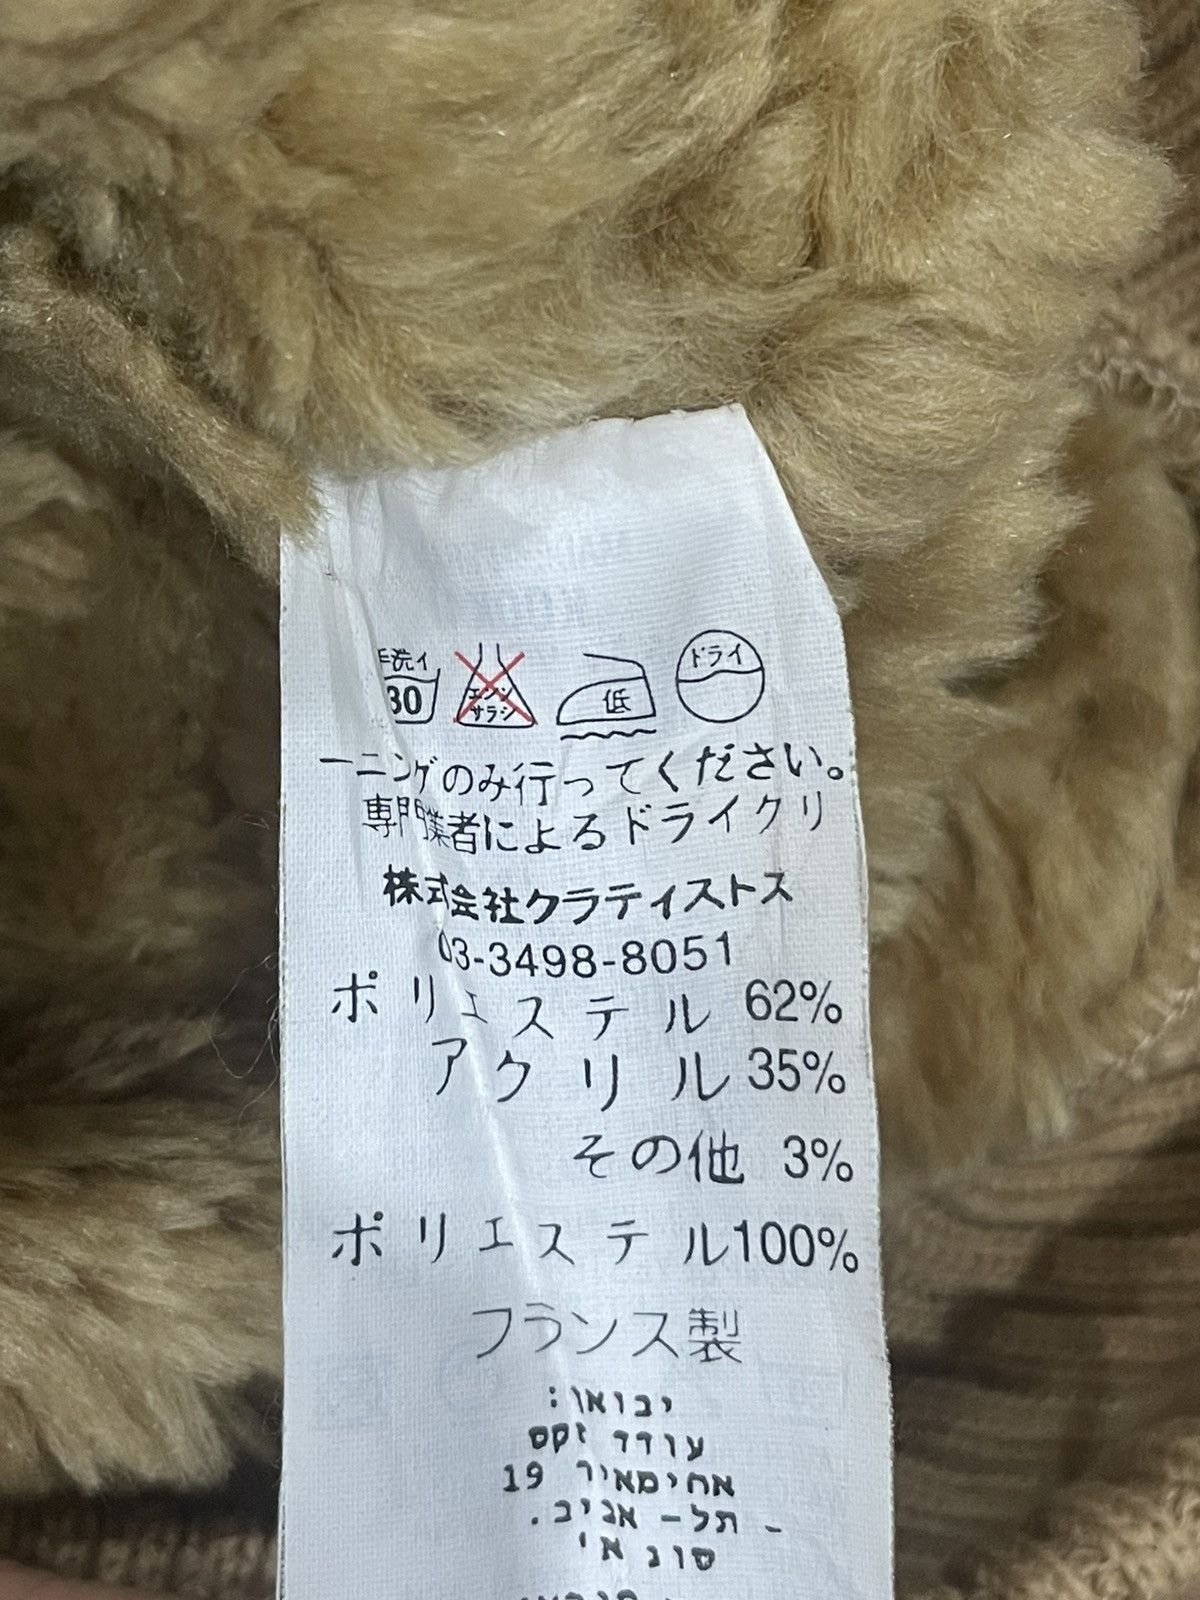 手洗イ
30
エンソ
サラシ
低
ドライ
ーニングのみ行ってください。
専門業者によるドライクリ
株式会社クラティストス
03-3498-8051
ポリエステル 62%
アクリル 35%
その他 3%
ポリエステル100%
フランス製
יבואן:
עודד זקס
אחימאיר 19
תל- אביב. -
סוג אי